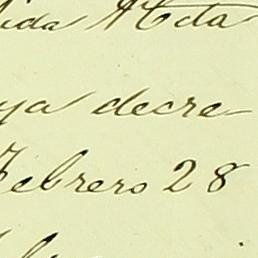 ida Acta
ya decre-
Febrero 28